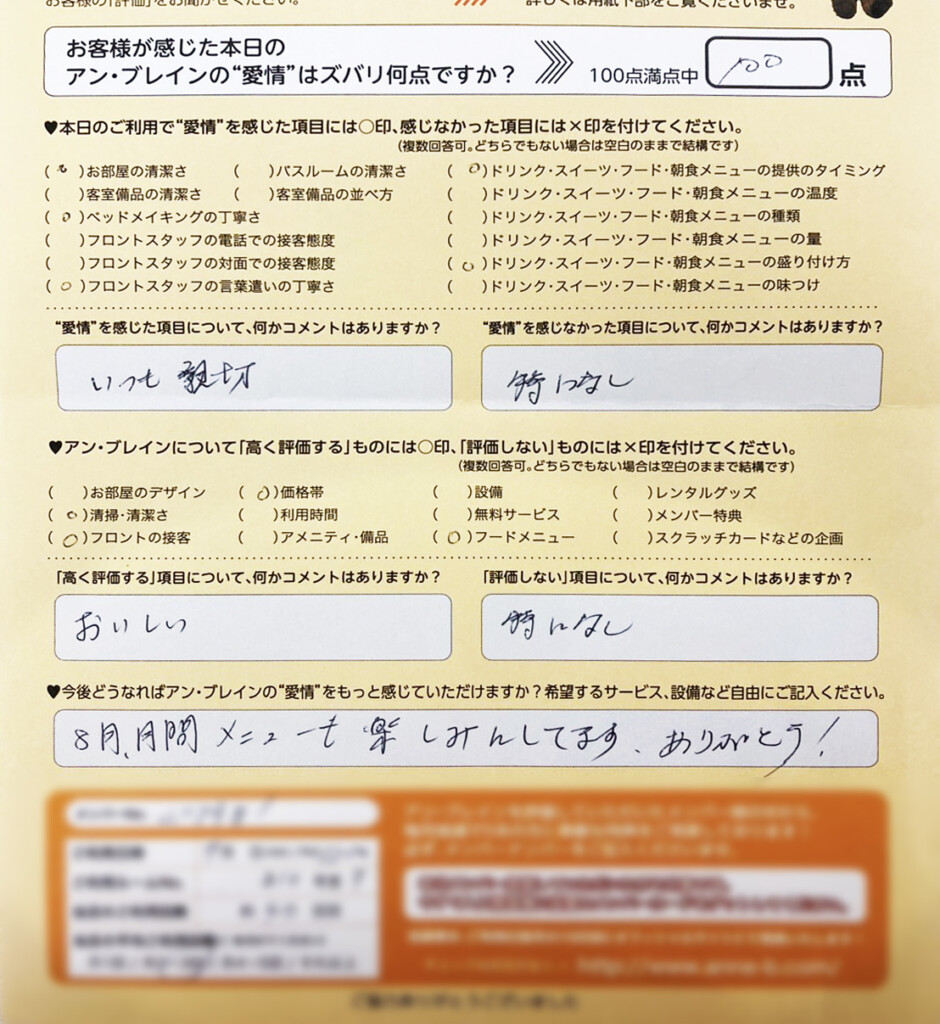 お客様の「評価」をお聞かせください。
詳しくは用紙下部をご覧くださいませ。
お客様が感じた本日の
アン・ブレインの“愛情”はズバリ何点ですか？ 100点満点中 100 点
♥本日のご利用で“愛情”を感じた項目には○印、感じなかった項目には×印を付けてください。
(複数回答可。どちらでもない場合は空白のままで結構です)
(○)お部屋の清潔さ ( )バスルームの清潔さ (○)ドリンク・スイーツ・フード・朝食メニューの提供のタイミング
( )客室備品の清潔さ ( )客室備品の並べ方 ( )ドリンク・スイーツ・フード・朝食メニューの温度
(○)ベッドメイキングの丁寧さ ( )ドリンク・スイーツ・フード・朝食メニューの種類
( )フロントスタッフの電話での接客態度 ( )ドリンク・スイーツ・フード・朝食メニューの量
( )フロントスタッフの対面での接客態度 (○)ドリンク・スイーツ・フード・朝食メニューの盛り付け方
(○)フロントスタッフの言葉遣いの丁寧さ ( )ドリンク・スイーツ・フード・朝食メニューの味つけ
“愛情”を感じた項目について、何かコメントはありますか？ “愛情”を感じなかった項目について、何かコメントはありますか？
いつも親切 特になし
♥アン・ブレインについて「高く評価する」ものには○印、「評価しない」ものには×印を付けてください。
(複数回答可。どちらでもない場合は空白のままで結構です)
( )お部屋のデザイン (○)価格帯 ( )設備 ( )レンタルグッズ
(○)清掃・清潔さ ( )利用時間 ( )無料サービス ( )メンバー特典
(○)フロントの接客 ( )アメニティ・備品 (○)フードメニュー ( )スクラッチカードなどの企画
「高く評価する」項目について、何かコメントはありますか？ 「評価しない」項目について、何かコメントはありますか？
おいしい 特になし
♥今後どうなればアン・ブレインの“愛情”をもっと感じていただけますか？希望するサービス、設備など自由にご記入ください。
8月、月間メニューも楽しみんしてます、ありがとう！